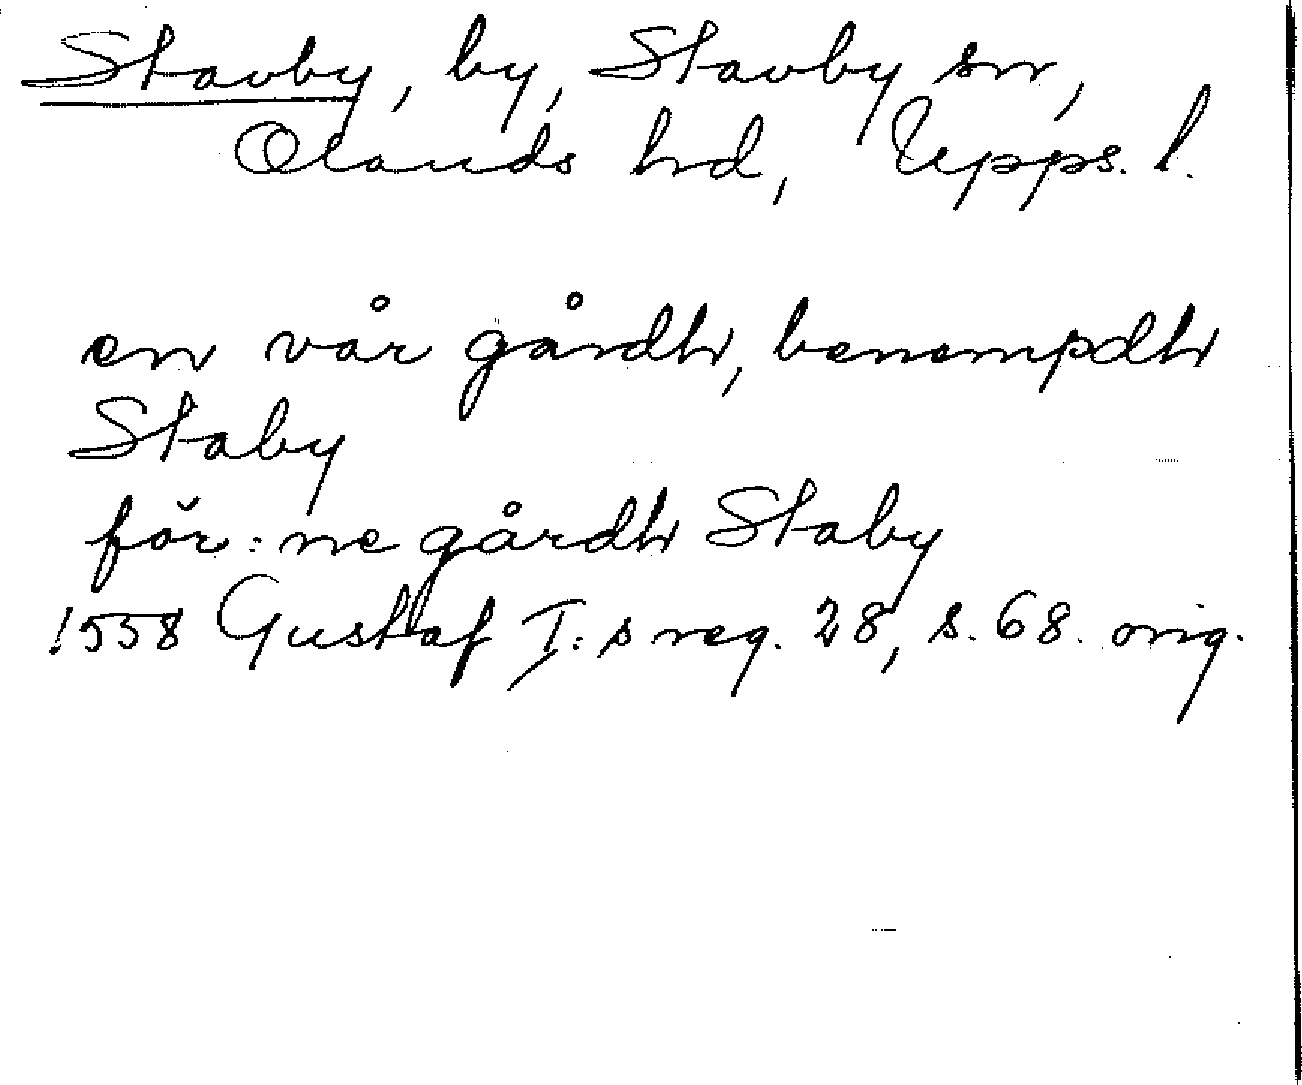 Stavby, by, Stavby sn,
Olands hd, Upps. l.
en vår gårdh, benempdh
Staby
för: ne gårdh Staby
1558 Gustaf I: s reg. 28, s. 68. orig.